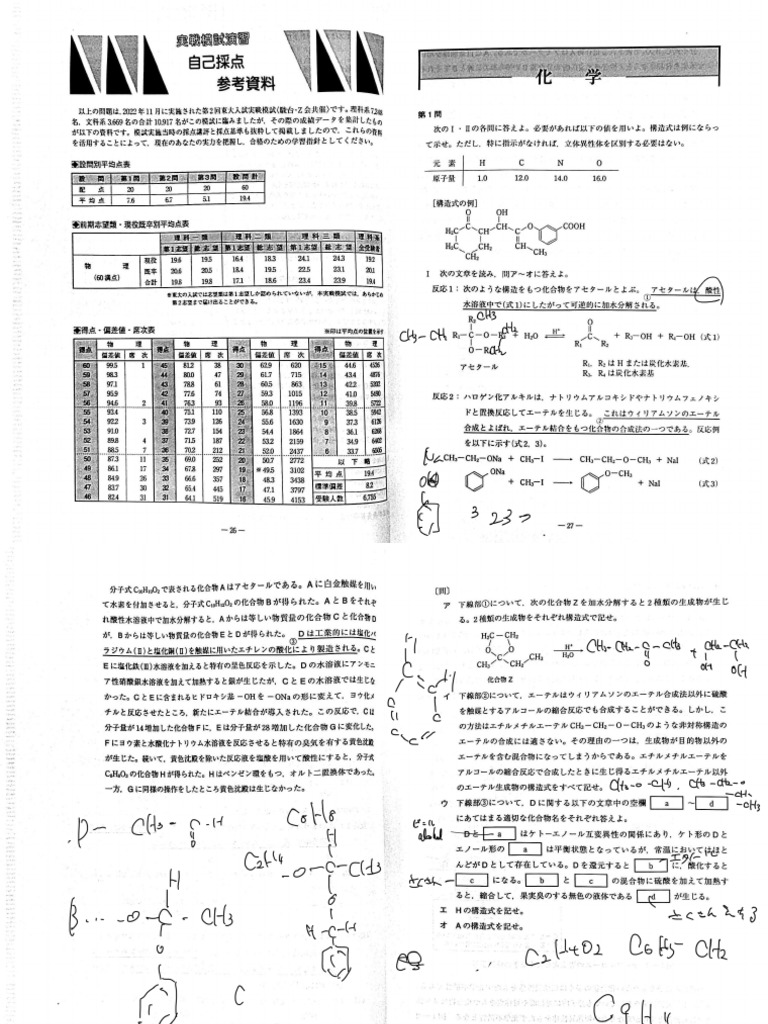 実戦模試演習
自己採点
参考資料
以上の問題は、2022年11月に実施された第2回東大入試実戦模試(駿台・Z会共催)です。理科系7,248
名、文科系3,669名の合計10,917名がこの模試に臨みましたが、その際の成績データを集計したもの
が以下の資料です。模試実施当時の採点講評と採点基準も抜粋して掲載しましたので、これらの資料
を活用することによって、現在のあなたの実力を把握し、合格のための学習指針としてください。
■設問別平均点表
設問 第1問 第2問 第3問 設問計
配点 20 20 20 60
平均点 7.6 6.7 5.1 19.4
■前期志望類・現役既卒別平均点表
理科一類 理科二類 理科三類 理科系
第1志望 総志望 第1志望 総志望 第1志望 総志望 全受験者
物理 (60満点)
現役 19.6 19.5 16.4 18.3 24.1 24.3 19.2
既卒 20.6 20.5 18.4 19.5 22.5 23.1 20.1
合計 19.8 19.8 17.1 18.6 23.4 23.9 19.4
※東大の入試では志望類は第1志望しか認められていないが、本実戦模試では、あらかじめ
第2志望まで届け出ることができる。
■得点・偏差値・席次表
※印は平均点の位置を示す
得点 物理 偏差値 席次 得点 物理 偏差値 席次 得点 物理 偏差値 席次 得点 物理 偏差値 席次
60 99.5 1 45 81.2 38 30 62.9 620 15 44.6 4526
59 98.3 44 80.0 47 29 61.7 715 14 43.4 4874
58 97.1 43 78.8 61 28 60.5 863 13 42.2 5202
57 95.9 42 77.6 74 27 59.3 1015 12 41.0 5490
56 94.6 2 41 76.3 93 26 58.0 1196 11 39.8 5722
55 93.4 40 75.1 110 25 56.8 1393 10 38.5 5942
54 92.2 3 39 73.9 126 24 55.6 1630 9 37.3 6126
53 91.0 38 72.7 154 23 54.4 1864 8 36.1 6268
52 89.8 4 37 71.5 187 22 53.2 2159 7 34.9 6402
51 88.5 7 36 70.2 212 21 52.0 2437 6 33.7 6505
50 87.3 11 35 69.0 252 20 50.7 2772 以下略
49 86.1 17 34 67.8 297 19 ※49.5 3102 平均点 19.4
48 84.9 26 33 66.6 357 18 48.3 3438 標準偏差 8.2
47 83.7 30 32 65.4 445 17 47.1 3797 受験人数 6,735
46 82.4 31 31 64.1 519 16 45.9 4153
― 26 ―
化学
第1問
次のI・IIの各問に答えよ。必要があれば以下の値を用いよ。構造式は例にならっ
て示せ。ただし、特に指示がなければ、立体異性体を区別する必要はない。
元素 H C N O
原子量 1.0 12.0 14.0 16.0
[構造式の例]
O OH
H₂C C CH C O COOH
H₂C CH₂ CH
C H₂ CH₃
I 次の文章を読み、問ア〜オに答えよ。
反応1:次のような構造をもつ化合物をアセタールとよぶ。アセタールは、酸性
①
水溶液中で(式1)にしたがって可逆的に加水分解される。
CH₃-CH
R₂ CH₃
R₁-C-O-R₃ + H₂O H⁺ O R₁ C R₂ + R₃-OH + R₄-OH (式1)
O-R₄
アセタール
R₁、R₂はHまたは炭化水素基、
R₃、R₄は炭化水素基
反応2:ハロゲン化アルキルは、ナトリウムアルコキシドやナトリウムフェノキシ
ドと置換反応してエーテルを生じる。これはウィリアムソンのエーテル
②
合成とよばれ、エーテル結合をもつ化合物の合成法の一つである。反応例
を以下に示す(式2, 3)。
CH₃-CH₂-ONa + CH₃-I → CH₃-CH₂-O-CH₃ + NaI (式2)
ONa + CH₃-I → O-CH₃ + NaI (式3)
― 27 ―
分子式C₁₀H₁₂O₂で表される化合物Aはアセタールである。Aに白金触媒を用い
て水素を付加させると、分子式C₁₀H₁₄O₂の化合物Bが得られた。AとBをそれぞ
れ酸性水溶液中で加水分解すると、Aからは等しい物質量の化合物CとDが、
が、Bからは等しい物質量の化合物EとDが得られた。Dは工業的には塩化パ
③
ラジウム(II)と塩化銅(II)を触媒に用いたエチレンの酸化により製造される。Cと
Eに塩化鉄(III)水溶液を加えると特有の呈色反応を示した。Dの水溶液にアンモニ
ア性硝酸銀水溶液を加えて加熱すると銀が生じたが、CとEの水溶液では生じな
かった。CとEに含まれるヒドロキシ基-OHを-ONaの形に変えて、ヨウ化メ
チルと反応させたところ、新たにエーテル結合が導入された。この反応で、Cは
分子量が14増加した化合物Fに、Eは分子量が28増加した化合物Gに変化した。
Fにヨウ素と水酸化ナトリウム水溶液を反応させると特有の臭気を有する黄色沈殿
が生じた。続いて、黄色沈殿を除いた反応液を塩酸を用いて酸性にすると、分子式
C₈H₈O₃の化合物Hが得られた。Hはベンゼン環をもつ、オルト二置換体であった。
一方、Gに同様の操作をしたところ黄色沈殿は生じなかった。
D- CH₃-C-H
O
C₈H₈
C₂H₄
H
-O-C-CH₃
B...-O-C-CH₃
H
O
C
[問]
ア 下線部①について、次の化合物Zを加水分解すると2種類の生成物が生じ
る。2種類の生成物をそれぞれ構造式で記せ。
H₂C-CH₂
O O
C
CH₃-CH₂ CH₃
化合物Z
H⁺
H₂O
CH₃-CH₂-C-CH₃ + CH₂-CH₂
O OH OH
イ 下線部②について、エーテルはウィリアムソンのエーテル合成法以外に硫酸
を触媒とするアルコールの縮合反応でも合成することができる。しかし、こ
の方法はエチルメチルエーテルCH₃-CH₂-O-CH₃のような非対称構造の
エーテルの合成には適さない。その理由の一つは、生成物が目的物以外の
エーテルを含む混合物になってしまうからである。エチルメチルエーテルを
アルコールの縮合反応で合成したときに生じ得るエチルメチルエーテル以外
のエーテル生成物の構造式をすべて記せ。 CH₃-O-CH₃, CH₃-CH₂-O
-CH₂-CH₃
ウ 下線部③について、Dに関する以下の文章中の空欄 a 〜 d
にあてはまる適切な化合物名をそれぞれ答えよ。
Dと a はケト-エノール互変異性の関係にあり、ケト形のDと
エノール形の a は平衡状態となっているが、常温においてはほと
んどがDとして存在している。Dを還元すると b に、酸化すると
c になる。 b と c の混合物に硫酸を加えて加熱す
ると、縮合して、果実臭のする無色の液体である d が生じる。
エ Hの構造式を記せ。
オ Aの構造式を記せ。
C₂H₄O₂ C₆H₅-CH₂
C₉H₄